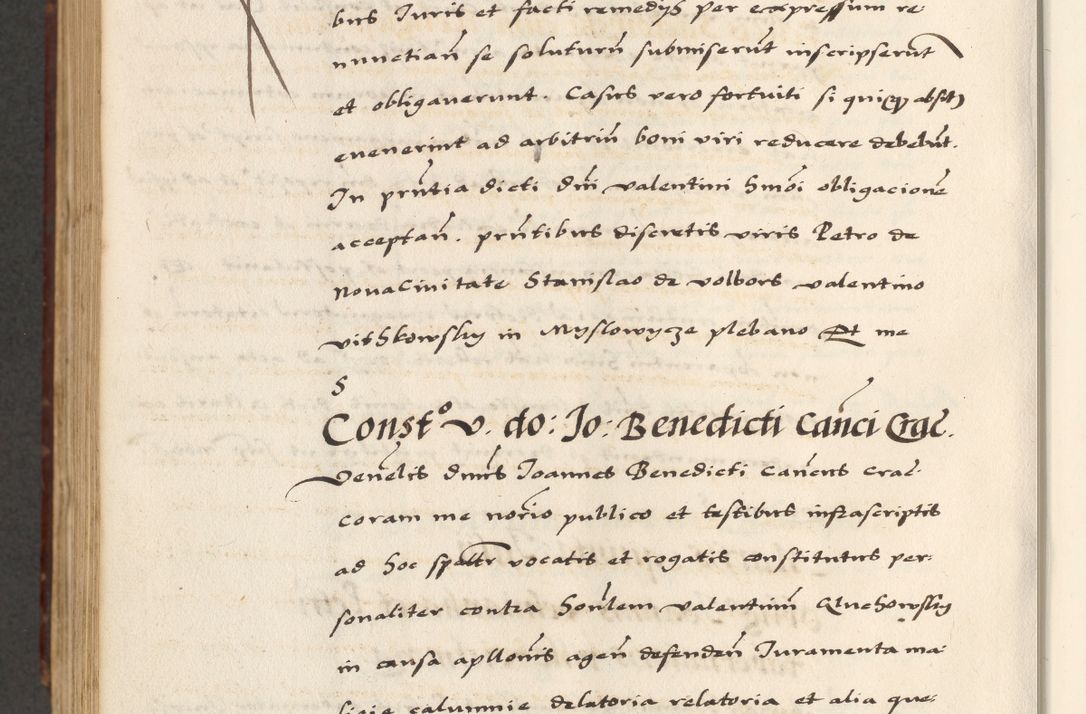 bus Iuris et facti remedijs per expressum re-
nunctiañ se soluturũ submiserũt inscripserũt
et obligauerunt. Casus vero fortuiti si quisq absit
euenerint ad arbitriũ boni viri reducere debebũt.
In prñtia dicti dñi valentini Smõi obligacionẽ
acceptañ. prñtibus discretis viris Petro de
Novacivitate Stanislao de volbors valentino
vitskowsky in Myslowycze plebano Et me
S
Constº v. do: Jo: Benedicti Cañci Crac̃.
Venẽlis dñus Ioannes Benedicti cañcus crac̃.
coram me norio publico et testibus infrascriptis
ad hoc spaltr vocatis et rogatis constitutus per-
sonaliter contra honlem valentinũ
in causa apllonis ageñ defendeñ Iuramenta ma-
licie calumnie delatoria relatoria et alia que-